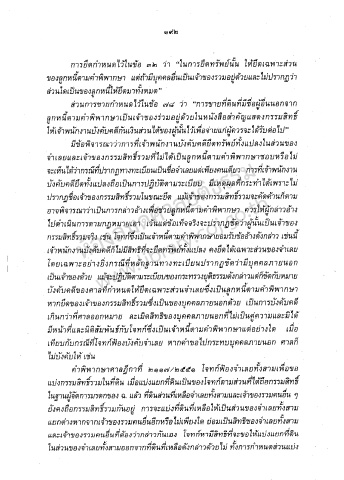 ๑๙๒
การยึดกำหนดไว้ในข้อ ๓๒ ว่า “ในการยึดทรัพย์นั้น ให้ยึดเฉพาะส่วน
ของลูกหนี้ตามคำพิพากษา แต่ถ้ามีบุคคลอื่นเป็นเจ้าของรวมอยู่ด้วยและไม่ปรากฏว่า
ส่วนใดเป็นของลูกหนี้ให้ยึดมาทั้งหมด”
ส่วนการขายกำหนดไว้ในข้อ ๗๘ ว่า “การขายที่ดินที่มีชื่อผู้อื่นนอกจาก
ลูกหนี้ตามคำพิพากษาเป็นเจ้าของร่วมอยู่ด้วยในหนังสือสำคัญแสดงกรรมสิทธิ์
ให้เจ้าพนักงานบังคับคดีกันเงินส่วนได้ของผู้นั้นไว้เพื่อจ่ายแก่ผู้ควรจะได้รับต่อไป”
มีข้อพิจารณาว่าการที่เจ้าพนักงานบังคับคดียึดทรัพย์ทั้งแปลงในส่วนของ
จำเลยและเจ้าของกรรมสิทธิ์รวมที่ไม่ได้เป็นลูกหนี้ตามคำพิพากษาชอบหรือไม่
จะเห็นได้ว่ากรณีที่ปรากฏทางทะเบียนเป็นชื่อจำเลยแต่เพียงคนเดียว การที่เจ้าพนักงาน
บังคับคดียึดทั้งแปลงถือเป็นการปฏิบัติตามระเบียบ มีเหตุผลที่กระทำได้เพราะไม่
ปรากฏชื่อเจ้าของกรรมสิทธิ์รวมในขณะยึด แม้เจ้าของกรรมสิทธิ์รวมจะคัดค้านก็ตาม
อาจพิจารณาว่าเป็นการกล่าวอ้างเพื่อช่วยลูกหนี้ตามคำพิพากษา ควรให้ผู้กล่าวอ้าง
ไปดำเนินการตามกฎหมายเอง เว้นแต่ข้อเท็จจริงจะปรากฏชัดว่าผู้นั้นเป็นเจ้าของ
กรรมสิทธิ์รวมจริง เช่น โจทก์ซึ่งเป็นเจ้าหนี้ตามคำพิพากษายอมรับข้ออ้างดังกล่าว เช่นนี้
เจ้าพนักงานบังคับคดีก็ไม่มีสิทธิที่จะยึดทรัพย์ทั้งแปลง คงยึดได้เฉพาะส่วนของจำเลย
โดยเฉพาะอย่างยิ่งกรณีที่หลักฐานทางทะเบียนปรากฏชัดว่ามีบุคคลภายนอก
เป็นเจ้าของด้วย แม้จะปฏิบัติตามระเบียบของกระทรวงยุติธรรมดังกล่าวแต่ก็ขัดกับหมาย
บังคับคดีของศาลที่กำหนดให้ยึดเฉพาะส่วนจำเลยซึ่งเป็นลูกหนี้ตามคำพิพากษา
หากยึดของเจ้าของกรรมสิทธิ์รวมซึ่งเป็นของบุคคลภายนอกด้วย เป็นการบังคับคดี
เกินกว่าที่ศาลออกหมาย ละเมิดสิทธิของบุคคลภายนอกที่ไม่เป็นคู่ความและมิได้
มีหน้าที่และนิติสัมพันธ์กับโจทก์ซึ่งเป็นเจ้าหนี้ตามคำพิพากษาแต่อย่างใด เมื่อ
เทียบกับกรณีที่โจทก์ฟ้องบังคับจำเลย หากคำขอไปกระทบบุคคลภายนอก ศาลก็
ไม่บังคับให้ เช่น
คำพิพากษาศาลฎีกาที่ ๒๑๑๗/๒๕๕๑ โจทก์ฟ้องจำเลยทั้งสามเพื่อขอ
แบ่งกรรมสิทธิ์รวมในที่ดิน เมื่อแบ่งแยกที่ดินเป็นของโจทก์ตามส่วนที่ได้ถือกรรมสิทธิ์
ในฐานะผู้จัดการมรดกของ ฉ. แล้ว ที่ดินส่วนที่เหลือจำเลยทั้งสามและเจ้าของรวมคนอื่น ๆ
ยังคงถือกรรมสิทธิ์รวมกันอยู่ การจะแบ่งที่ดินที่เหลือให้เป็นส่วนของจำเลยทั้งสาม
แยกต่างหากจากเจ้าของรวมคนอื่นอีกหรือไม่เพียงใด ย่อมเป็นสิทธิของจำเลยทั้งสาม
และเจ้าของรวมคนอื่นที่ต้องว่ากล่าวกันเอง โจทก์หามีสิทธิที่จะขอให้แบ่งแยกที่ดิน
ในส่วนของจำเลยทั้งสามออกจากที่ดินที่เหลือดังกล่าวด้วยไม่ ทั้งการกำหนดส่วนแบ่ง